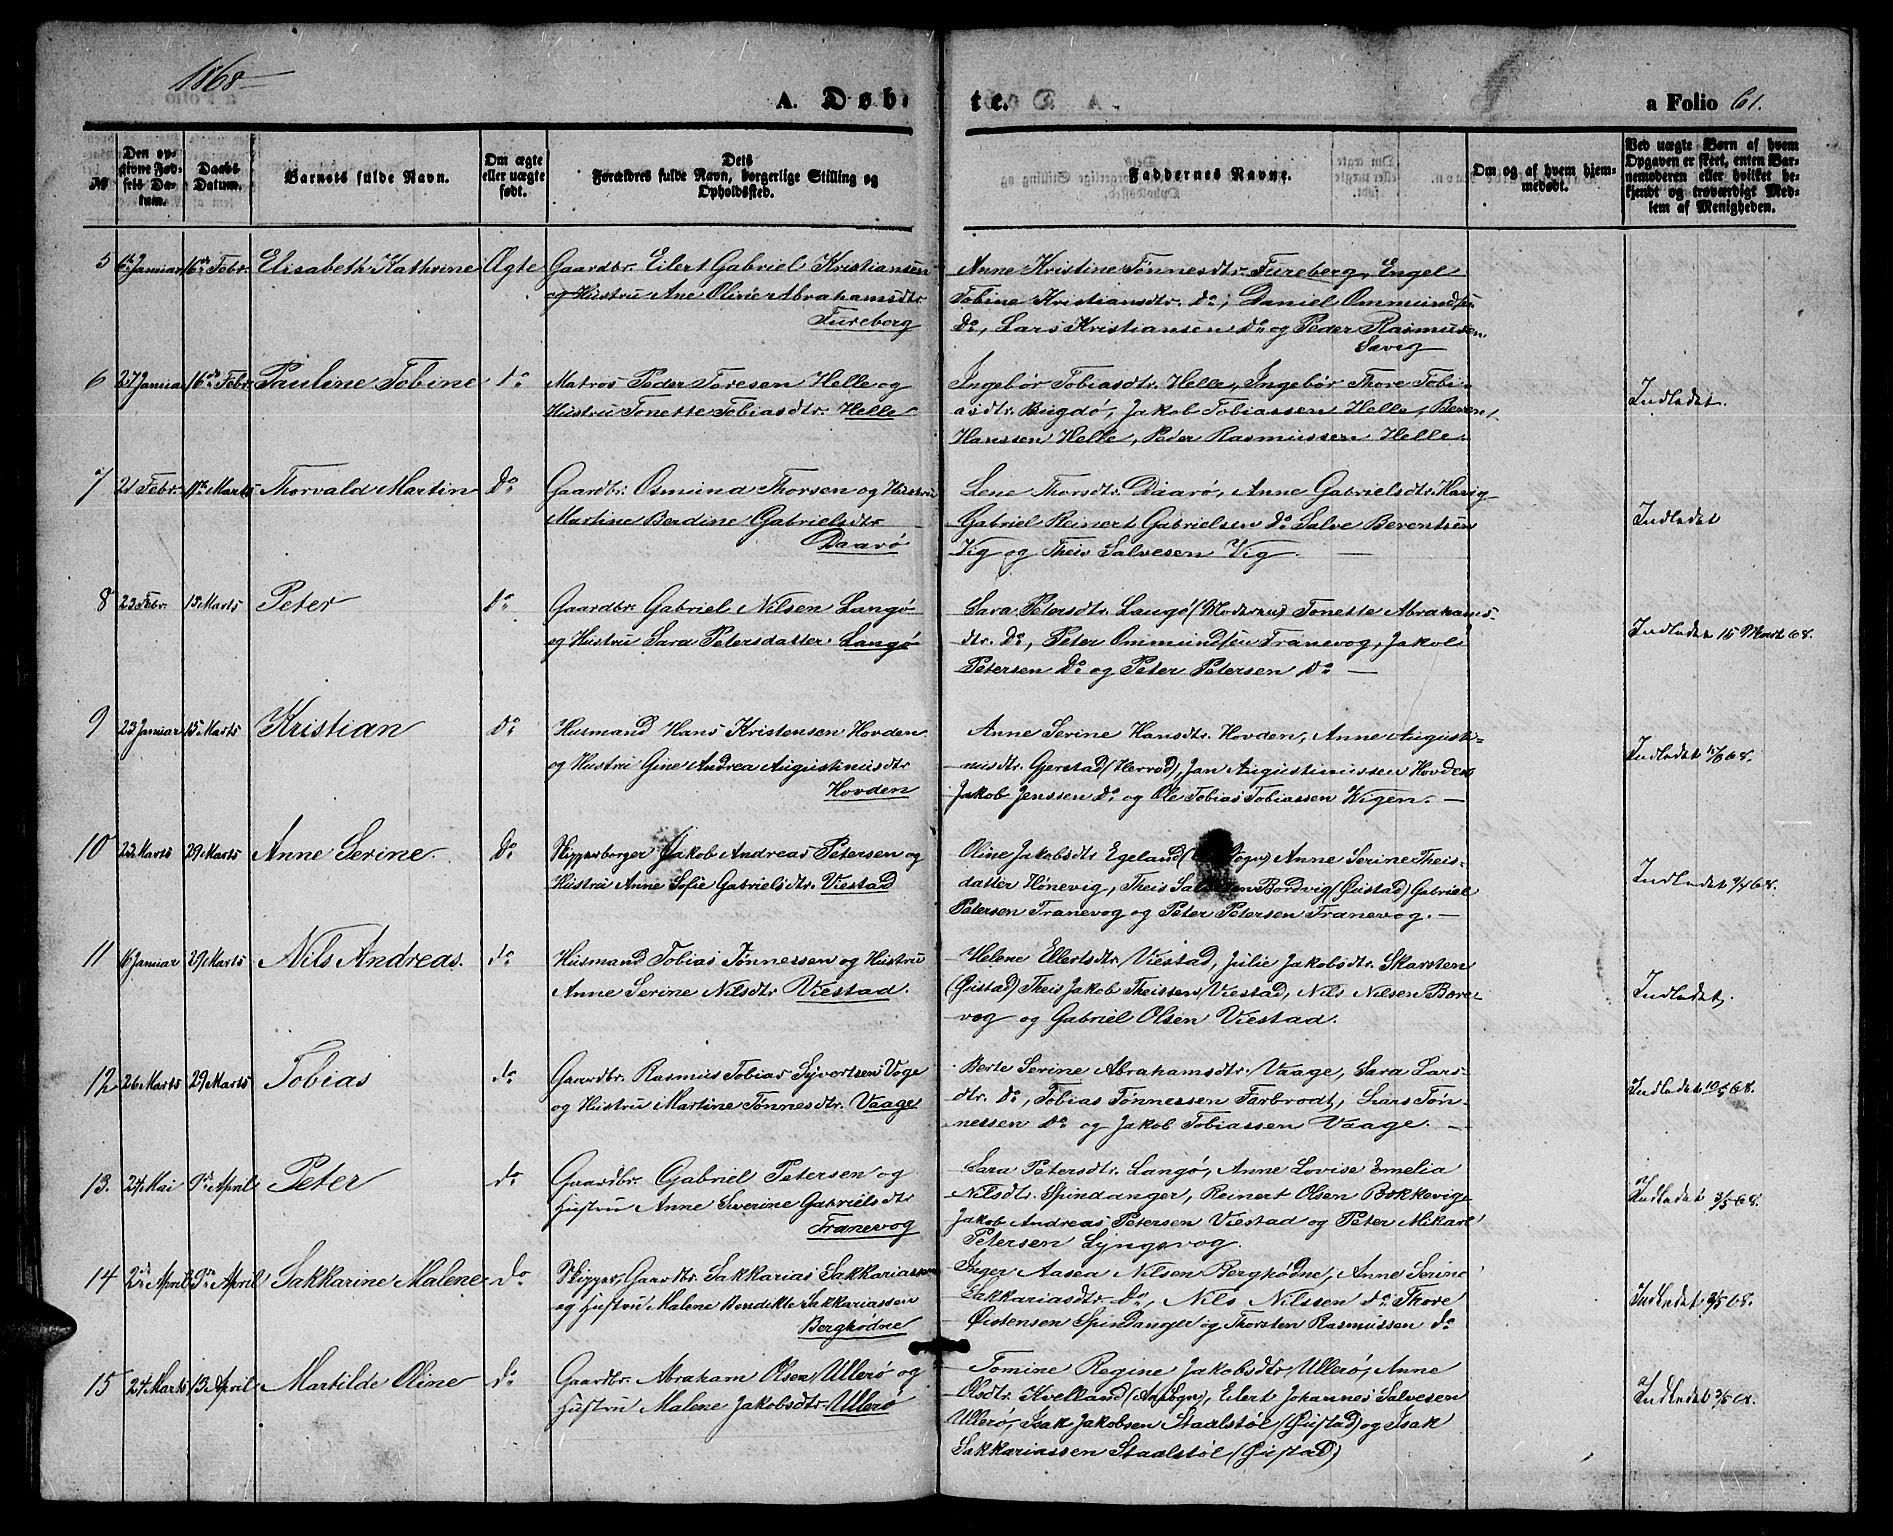 1868
A. Døb-
te.
a Folio 61.
No
Den op-
givne Fød-
sels Da-
tum.
Daabs
Datum.
Barnets fulde Navn.
Om ægte
eller uægte
født.
Dets
Forældres fulde Navn, borgerlige Stilling og
Opholdssted.
Faddernes Navne.
Om og af hvem hjem-
medøbt.
Ved uægte Børn af hvem
Opgaven er skeet, enten Bar-
nemoderen eller hvilket be-
kjendt og troværdigt Med-
lem af Menigheden.
5 6te Januar 16de Febr. Elisabeth Kathrine Ægte Gaardbr. Eilert Gabriel Kristiansen
og Hustru Ane Oline Abrahamsdtr
Fureberg
Anne Kristine Tønnesdtr. Fureberg, Engel
Tobine Kristiansdtr. do, Daniel Ommundsen
do, Lars Kristiansen do og Peder Rasmusen
Savig
6 27 Januar 16de Febr. Pauline Tobine do Matros Peder Toresen Helle og
Hustru Tonette Tobiasdtr. Helle
Ingebør Tobiasdtr. Helle, Ingebør Thore Tobi-
asdtr. Bugdø, Jakob Tobiassen Helle, Beren,
Hanssen Helle, Peder Rasmussen Helle.
Indledet.
7 21 Febr. 11te Marts Thorvald Martin do Gaardbr. Osmund Thorsen og Hustru
Martine Berdine Gabrielsdtr
Daarø
Lene Thorsdtr. Daarø, Anne Gabrielsdtr. Havig
Gabriel Reinert Gabrielsen do Salve Berentsen
Vig og Theis Salvesen Vig.
Indledet
8 23 Febr. 15 Marts Peter do Gaardbr. Gabriel Nilsen Langø
og Hustru Sara Petersdatter Langø
Sara Petersdtr. Langø (Moderen) Tonette Abrahams-
dtr. do, Peter Ommundsen Franevog, Jakob
Petersen do og Peter Petersen do
Indledet 15 Mart 68.
9 23 Januar 15 Marts Kristian do Husmand Hans Kristensen Hovden
og Hustru Gine Andrea Augustinusdtr
Hovden
Anne Serine Hansdtr. Hovden, Anne Augusti-
nusdtr. Gjerstad (Herrød), Jan Augustinussen Hovden
Jakob Jenssen do og Ole Tobias Tobiassen Vigen.
Indledet 68.
10 22 Marts 29 Marts Anne Serine do Skipperborger Jakob Andreas Petersen og
Hustru Anne Sofie Gabrielsdtr. Viestad
Oline Jakobsdtr Egeland Anne Serine Theis-
datter Hønevig, Theis Bordvig (Øiestad) Gabriel
Petersen Franevog og Peter Petersen Franevog.
Indledet 9/4 68.
11 6 Januar 29 Marts Nils Andreas. do Husmand Tobias Tønnessen og Hustru
Anne Serine Nilsdtr Viestad.
Helene Ellertsdtr. Viestad, Julie Jakobsdtr. Skarsten
(Øistad) Theis Jakob Theissen Viestad, Nils Nilsen Bore-
vog og Gabriel Olsen Viestad.
Indledet.
12 26 Marts 29 Marts Tobias do Gaardbr. Rasmus Tobias Syvertsen Voge
og Hustru Martine Tønnesdtr. Vaage
Berte Serine Abrahamsdtr. Vaage, Sara Lars-
dtr. do, Tobias Tønnessen Farbrodt, Lars Tøn-
nessen do og Jakob Tobiassen Vaage.
Indledet 10/5 68.
13. 24 Mai 9de April Peter do Gaardbr. Gabriel Petersen og
Hustru Anne Siverine Gabrielsdtr
Franevog
Sara Petersdtr. Langø, Anne Lovise Emelia
Nilsdtr. Spindanger, Reinert Olsen Bøkkevig,
Jakob Andreas Petersen Viestad og Peter Mikael
Petersen Lyngsvog.
Indledet 3/5 68.
14 2de April 9de April Sakkarine Malene do Skipper, Gaardbr. Sakkarias Sakkariassen
og Hustru Malene Bendikte Sakkariassen
Berghodne
Inger Aasea Nilsen Berghødne, Anne Serine
Sakkariasdtr. do, Nils Nilssen do. Thore
Øistensen Spindanger og Thorsten Rasmussen do
Indledet 3/5 68.
15 24 Marts 13 April Martilde Oline do Gaardbr. Abraham Olsen Ullerø og
Hustru Malene Jakobsdtr. Ullerø
Tomine Regine Jakobsdtr, Ullerø, Anne
Olsdtr. Kvelland (An Sogn), Eilert Johannes Salvesen
Ullerø, Isak Jakobsen Staalstøl (Øistad) og Isak
Sakkariassen Staalstøl (Øistad)
Indledet 3/5 68.